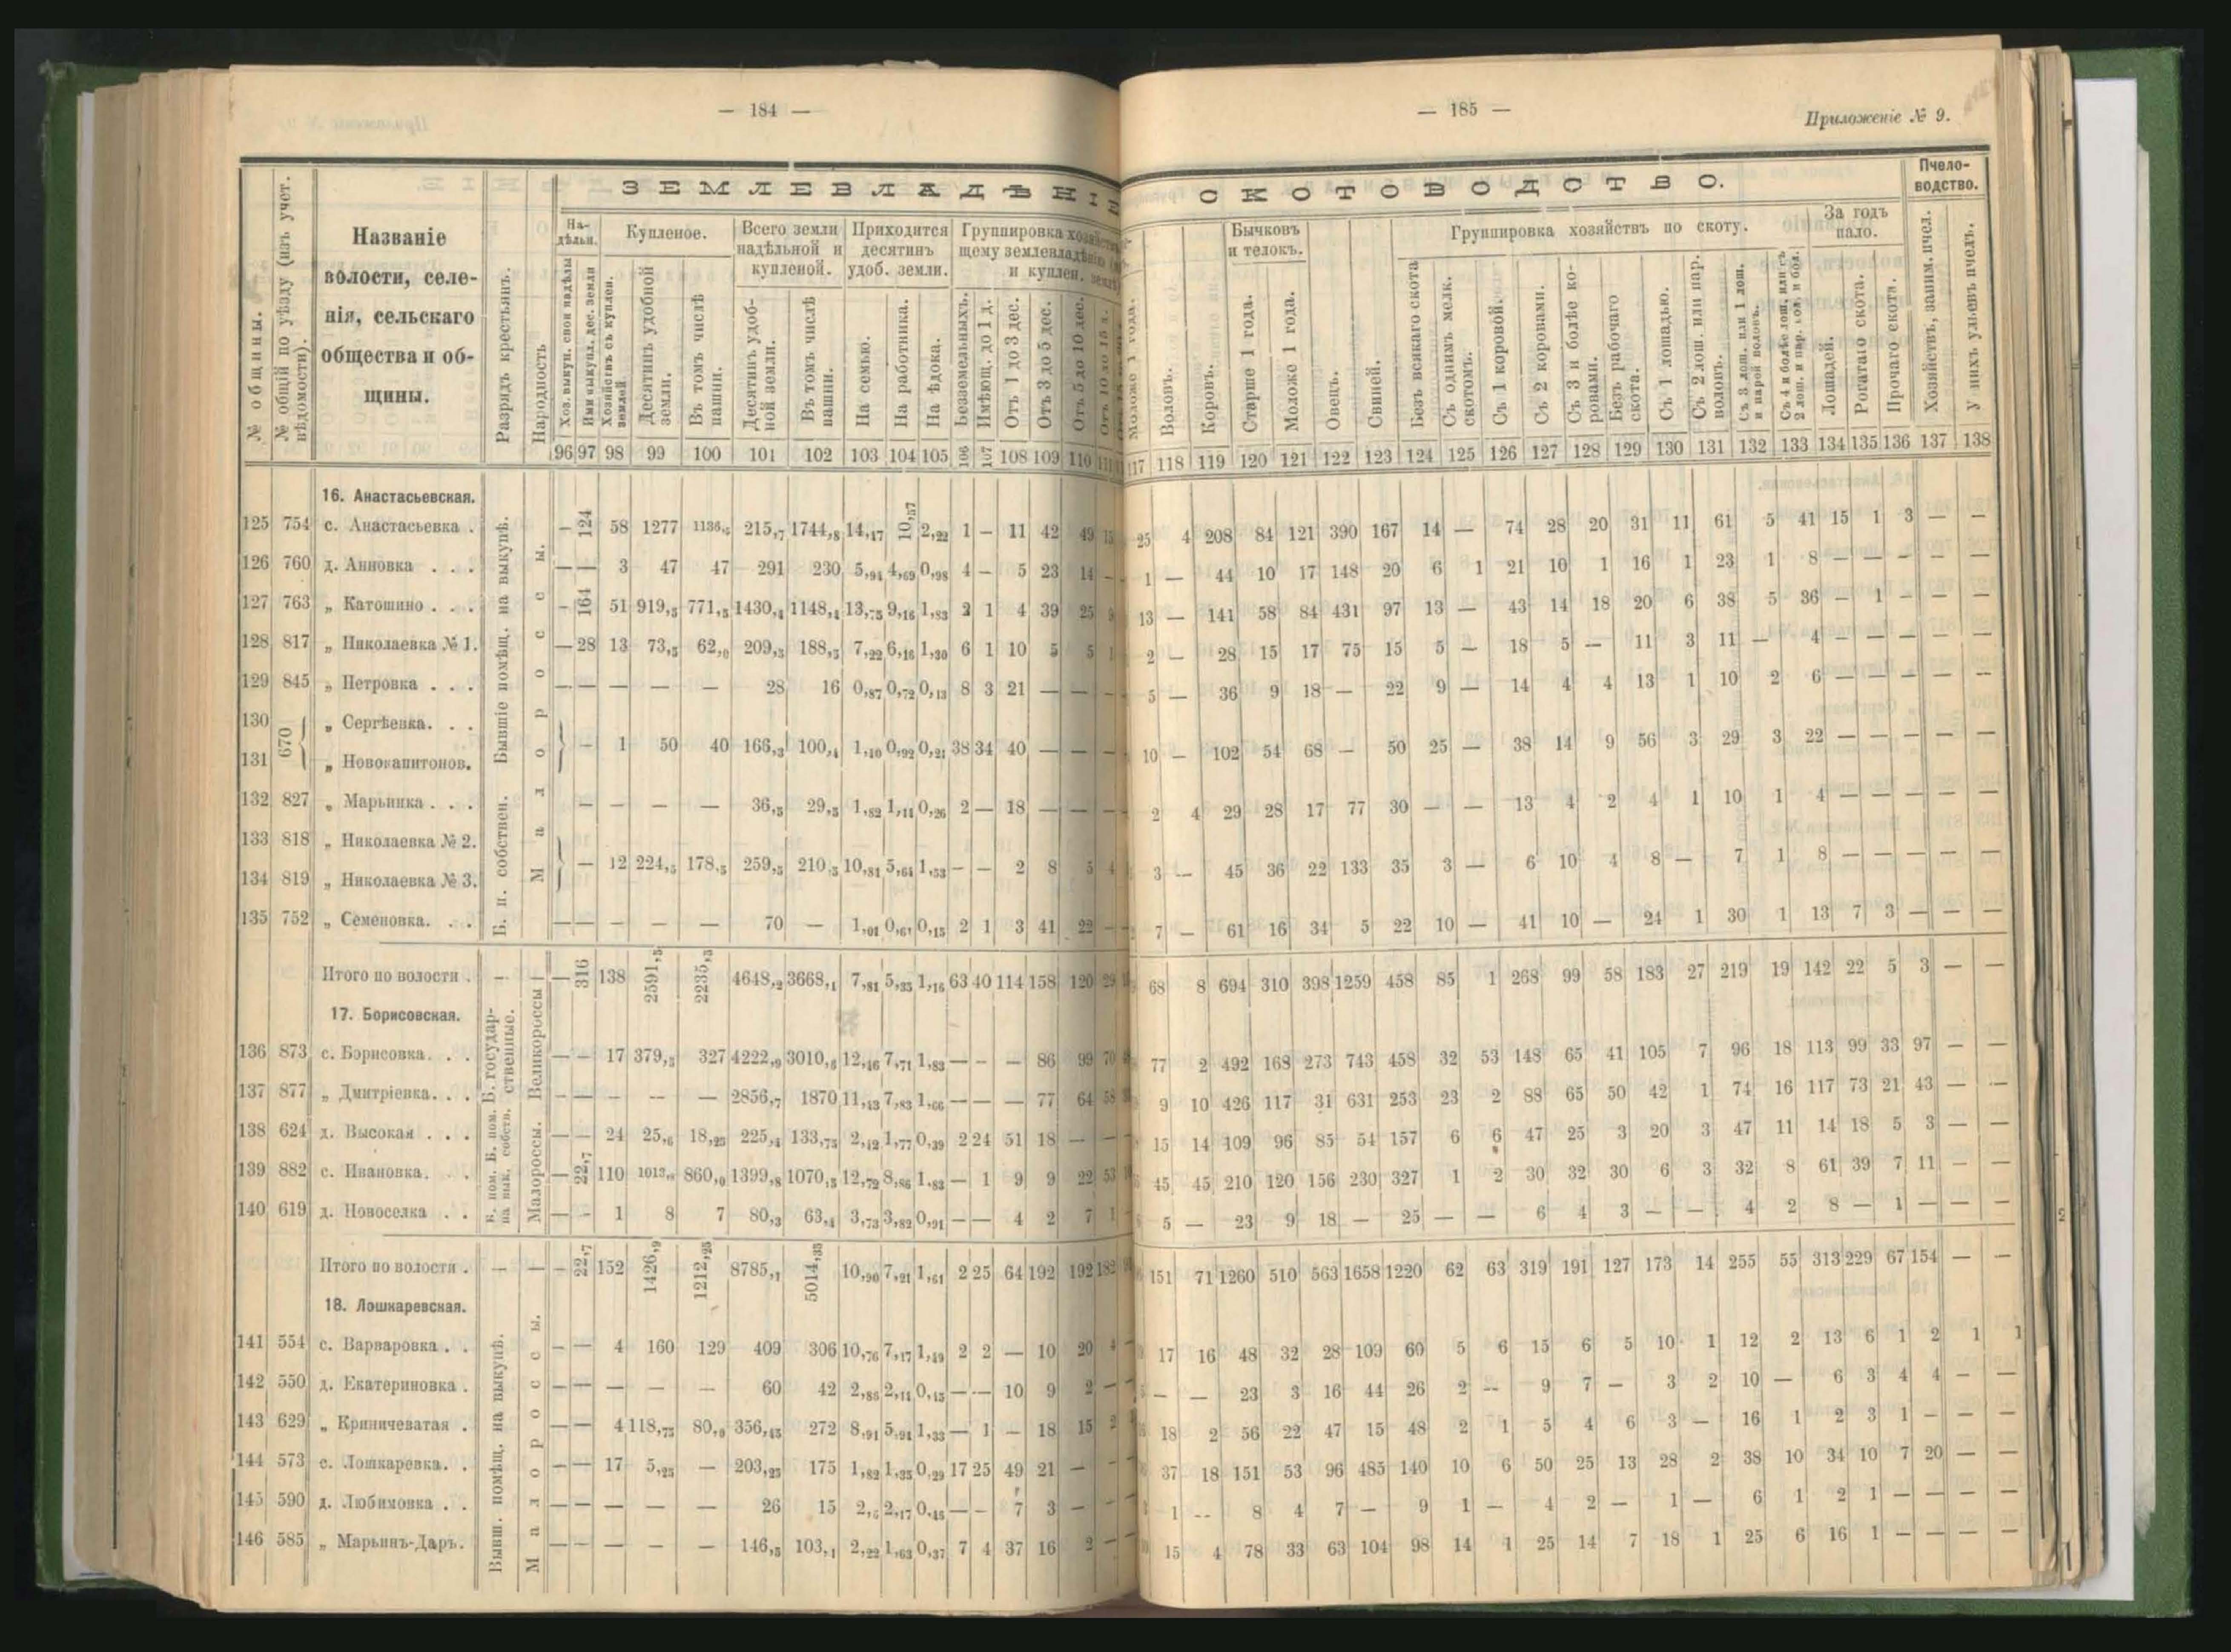 — 184 —
ЗЕМЛЕВЛАДѢНІЕ
№ общины.
№ общій по уѣзду (изъ учет. вѣдомости).
Названіе
волости, селе-
нія, сельскаго
общества и об-
щины.
Разрядъ крестьянъ.
Народность
На-
дѣльн.
Купленое.
Всего земли
надѣльной и
купленой.
Приходится
десятинъ
удоб. земли.
Группировка хозяйствъ
щему землевладѣнію
и куплен. земл.
Хоз. выкуп. свои надѣлы
Ими выкупл. дес. земли
Хозяйствъ съ куплен. землей.
Десятинъ удобной земли.
Въ томъ числѣ пашни.
Десятинъ удоб-
ной земли.
Въ томъ числѣ пашни.
На семью.
На работника.
На ѣдока.
Безземельныхъ.
Имѣющ. до 1 д.
Отъ 1 до 3 дес.
Отъ 3 до 5 дес.
Отъ 5 до 10 дес.
96 97 98 99 100 101 102 103 104 105 106 107 108 109 110 111
16. Анастасьевская.
125 754 с. Анастасьевка . — 124 58 1277 1136,5 215,7 1744,8 14,17 10,157 2,22 1 — 11 42 49 15
126 760 д. Анновка . . . — — 3 47 47 291 230 5,94 4,69 0,98 4 — 5 23 14 —
127 763 „ Катошино . . . — 164 51 919,5 771,5 1430,4 1148,4 13,75 9,16 1,83 2 1 4 39 25
128 817 „ Николаевка № 1. — 28 13 73,5 62,0 209,3 188,5 7,22 6,16 1,30 6 1 10 5 5 1
129 845 „ Петровка . . . — — — — — 28 16 0,87 0,72 0,13 8 3 21 — — —
130 670 „ Сергѣевка. . .
131 „ Новокапитонов. — 1 50 40 166,3 100,4 1,10 0,92 0,21 38 34 40 — — —
132 827 „ Марьинка . . . — — — — 36,5 29,5 1,82 1,11 0,26 2 — 18 — — —
133 818 „ Николаевка № 2.
134 819 „ Николаевка № 3. — 12 224,5 178,5 259,5 210,5 10,81 5,64 1,53 — — 2 8 5 4
135 752 „ Семеновка. . . — — — — — 70 — 1,01 0,67 0,15 2 1 3 41 22 —
Бывшіе помѣщ. на выкупѣ.
Б. п. собствен.
Малороссы.
Итого по волости . — — — 316 138 2591,5 2235,5 4648,2 3668,1 7,81 5,33 1,16 63 40 114 158 120 29
17. Борисовская.
136 873 с. Борисовка. . . — — 17 379,5 327 4222,9 3010,6 12,46 7,71 1,83 — — — 86 99 70
137 877 „ Дмитріевка. . . — — — — — 2856,7 1870 11,43 7,83 1,66 — — — 77 64 58
138 624 д. Высокая . . . — — 24 25,6 18,25 225,4 133,75 2,12 1,77 0,39 2 24 51 18 — —
139 882 с. Ивановка. . . — 22,7 110 1013,8 860,0 1399,8 1070,5 12,72 8,86 1,83 — 1 9 9 22 53
140 619 д. Новоселка . . — — 1 8 7 80,3 63,4 3,73 3,82 0,91 — — 4 2 7 1
Б. государ-
ственные.
Б. пом.
собств.
Б. пом.
на вык.
Великороссы
Малороссы.
Итого по волости . — — — 22,7 152 1426,9 1212,25 8785,1 5014,35 10,90 7,21 1,61 2 25 64 192 192 182
18. Лошкаревская.
141 554 с. Варваровка . . — — 4 160 129 409 306 10,76 7,17 1,49 2 2 — 10 20 4
142 550 д. Екатериновка . — — — — — 60 42 2,86 2,14 0,43 — — 10 9 2 —
143 629 „ Криничеватая . — — 4 118,75 80,9 356,45 272 8,91 5,94 1,33 — 1 — 18 15 2
144 573 с. Лошкаревка. . — — 17 5,25 — 203,25 175 1,82 1,35 0,29 17 25 49 21 — —
145 590 д. Любимовка . . — — — — — 26 15 2,6 2,17 0,48 — — 7 3 — —
146 585 „ Марьинъ-Даръ. — — — — — 146,5 103,1 2,22 1,63 0,37 7 4 37 16 2 —
Бывш. помѣщ. на выкупѣ.
Малороссы.
— 185 —
Приложеніе № 9.
СКОТОВОДСТВО.
Пчело-
водство.
Бычковъ
и телокъ.
Группировка хозяйствъ по скоту.
За годъ
пало.
Моложе 1 года.
Воловъ.
Коровъ.
Старше 1 года.
Моложе 1 года.
Овецъ.
Свиней.
Безъ всякаго скота
Съ однимъ мелк. скотомъ.
Съ 1 коровой.
Съ 2 коровами.
Съ 3 и болѣе ко-
ровами.
Безъ рабочаго скота.
Съ 1 лошадью.
Съ 2 лош. или пар. воловъ.
Съ 3 лош. или 1 лош. и парой воловъ.
Съ 4 и болѣе лош. или съ 2 лош. и пар. вол. и бол.
Лошадей.
Рогатаго скота.
Прочаго скота.
Хозяйствъ, заним. пчел.
У нихъ ульевъ пчелъ.
117 118 119 120 121 122 123 124 125 126 127 128 129 130 131 132 133 134 135 136 137 138
25 4 208 84 121 390 167 14 — 74 28 20 31 11 61 5 41 15 1 3 — —
1 — 44 10 17 148 20 6 1 21 10 1 16 1 23 1 8 — — — — —
13 — 141 58 84 431 97 13 — 43 14 18 20 6 38 5 36 — 1 — — —
2 — 28 15 17 75 15 5 — 18 5 — 11 3 11 — 4 — — — — —
5 — 36 9 18 — 22 9 — 14 4 4 13 1 10 2 6 — — — — —
10 — 102 54 68 — 50 25 — 38 14 9 56 3 29 3 22 — — — — —
2 4 29 28 17 77 30 — — 13 4 2 4 1 10 1 4 — — — — —
3 — 45 36 22 133 35 3 — 6 10 4 8 — 7 1 8 — — — — —
7 — 61 16 34 5 22 10 — 41 10 — 24 1 30 1 13 7 3 — — —
68 8 694 310 398 1259 458 85 1 268 99 58 183 27 219 19 142 22 5 3 — —
77 2 492 168 273 743 458 32 53 148 65 41 105 7 96 18 113 99 33 97 — —
9 10 426 117 31 631 253 23 2 88 65 50 42 1 74 16 117 73 21 43 — —
15 14 109 96 85 54 157 6 6 47 25 3 20 3 47 11 14 18 5 3 — —
45 45 210 120 156 230 327 1 2 30 32 30 6 3 32 8 61 39 7 11 — —
5 — 23 9 18 — 25 — — 6 4 3 — — 4 2 8 — 1 — — —
151 71 1260 510 563 1658 1220 62 63 319 191 127 173 14 255 55 313 229 67 154 — —
17 16 48 32 28 109 60 5 6 15 6 5 10 1 12 2 13 6 1 2 1 1
— — 23 3 16 44 26 2 — 9 7 — 3 2 10 — 6 3 4 4 — —
18 2 56 22 47 15 48 2 1 5 4 6 3 — 16 1 2 3 1 — — —
37 18 151 53 96 485 140 10 6 50 25 13 28 2 38 10 34 10 7 20 — —
1 — 8 4 7 — 9 1 — 4 2 — 1 — 6 1 2 1 — — — —
15 4 78 33 63 104 98 14 1 25 14 7 18 1 25 6 16 1 — — — —